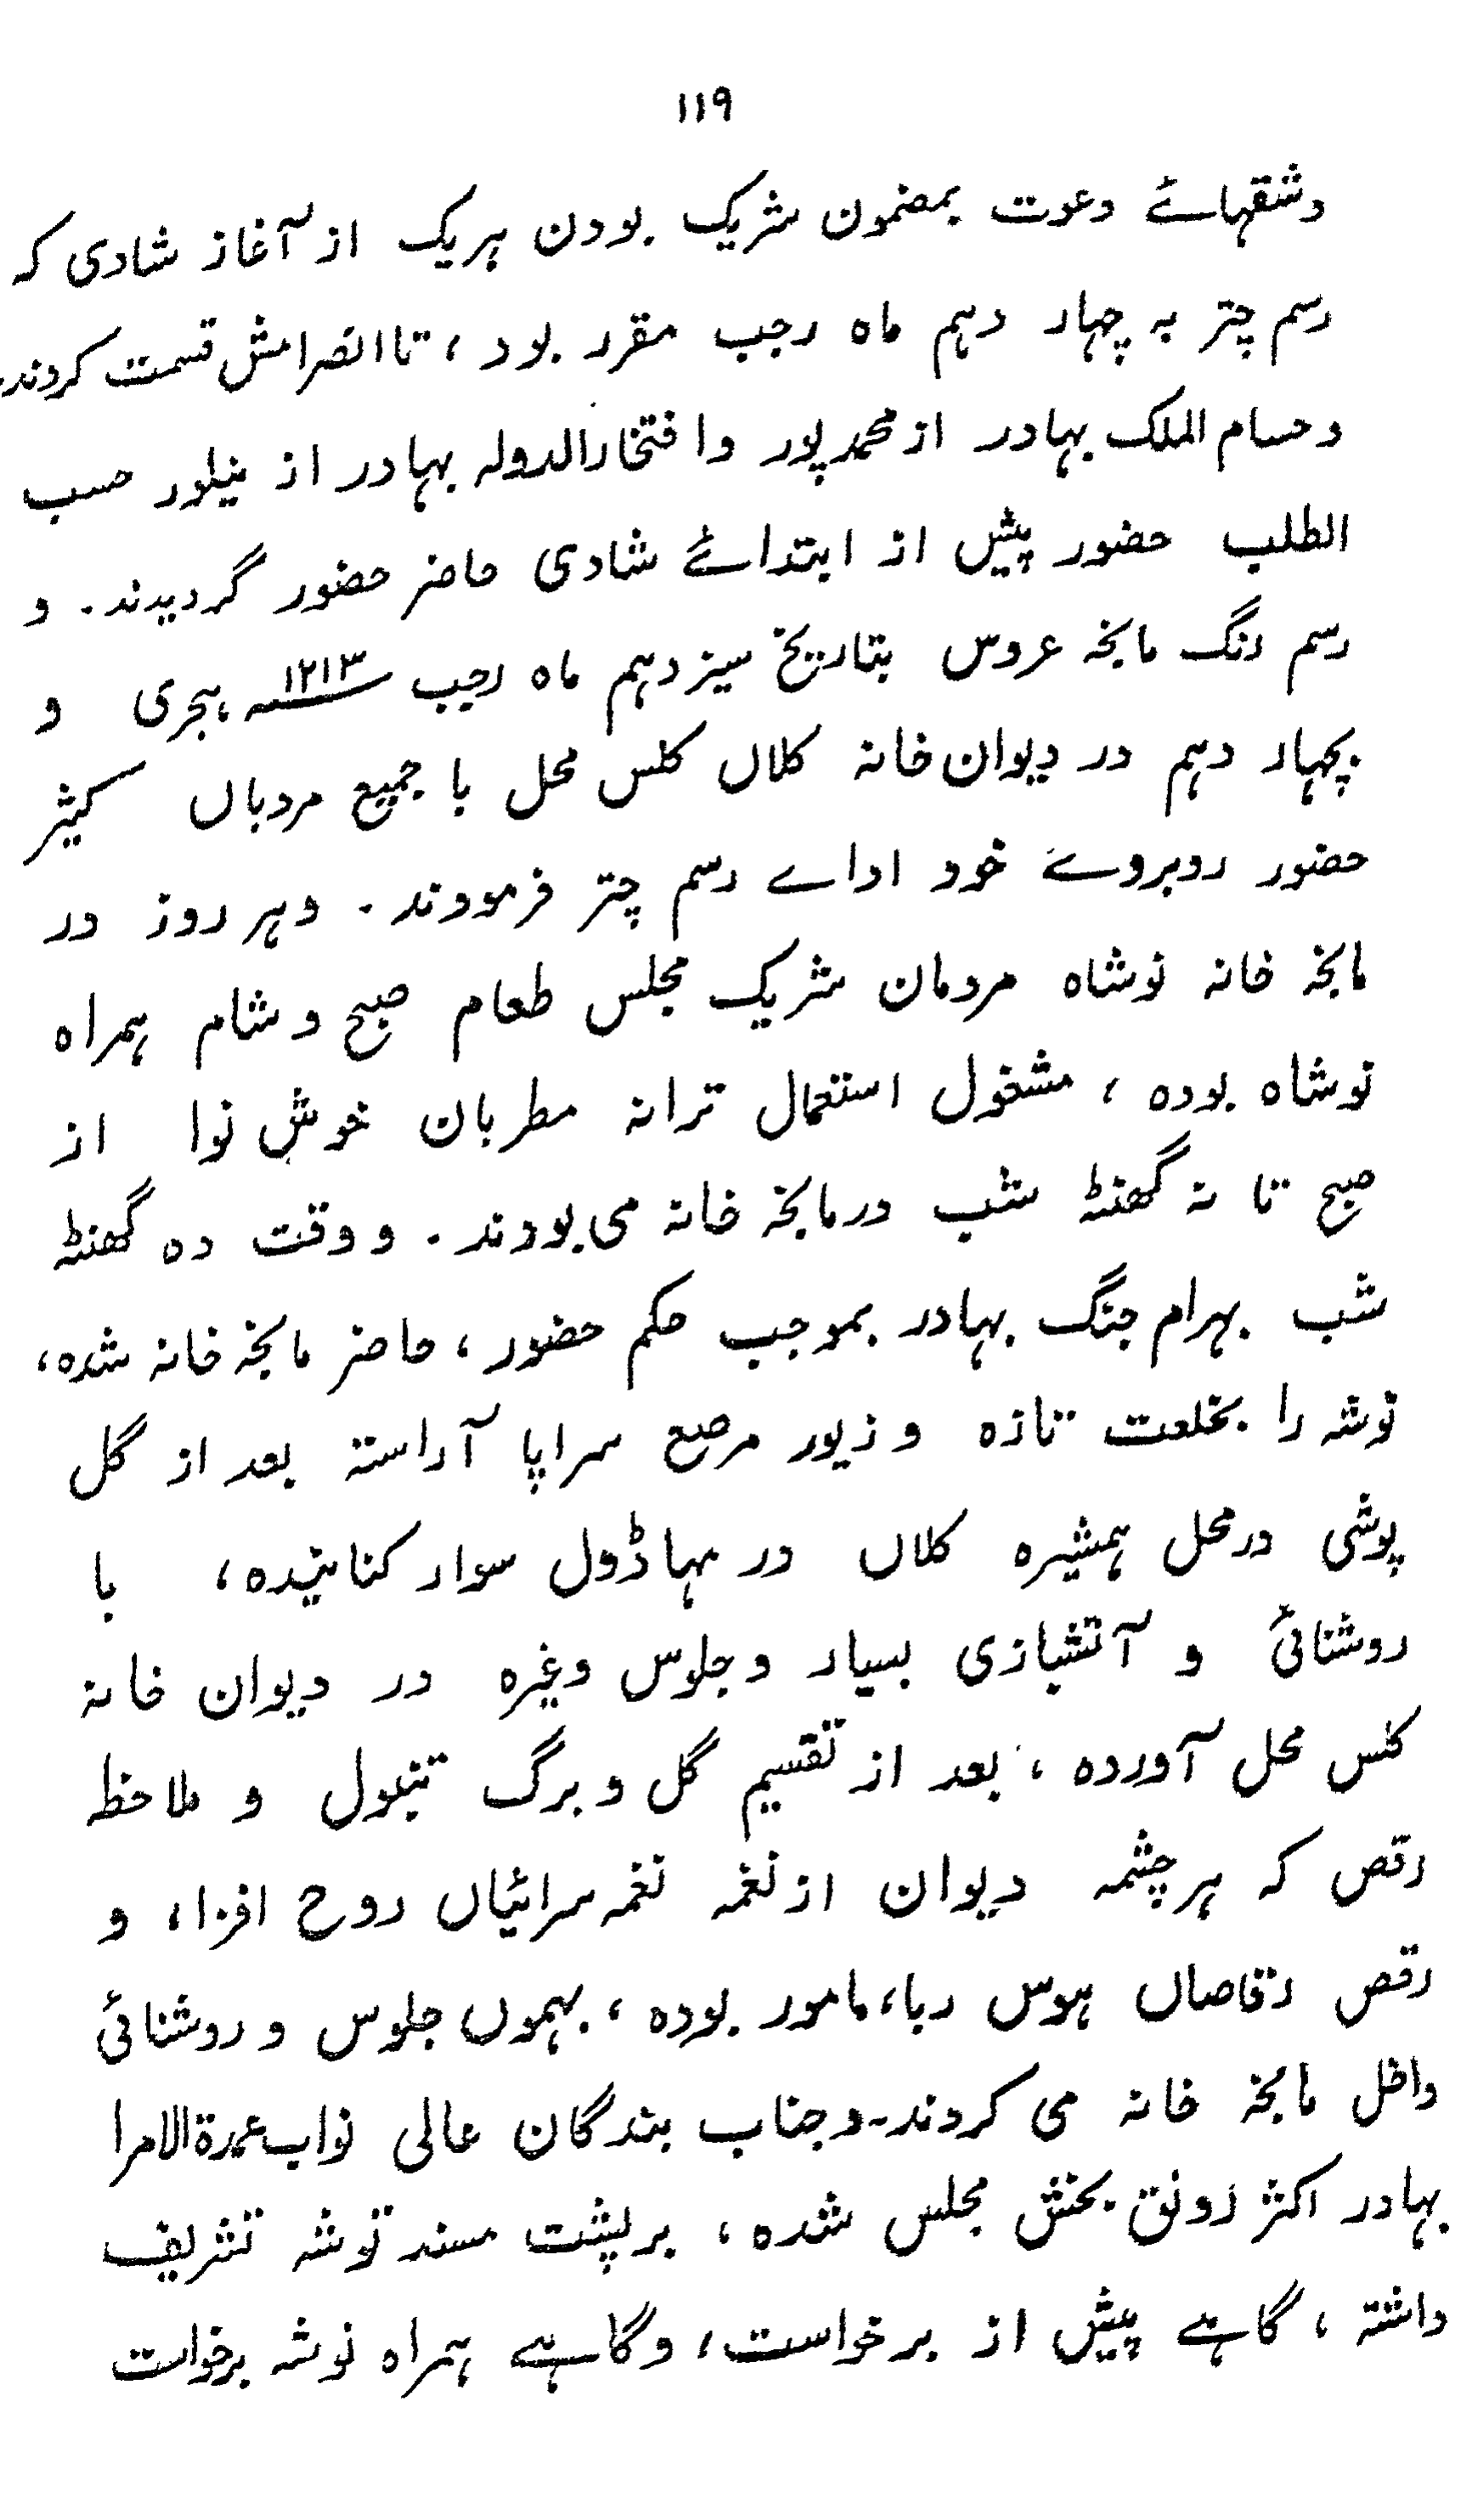 ۱۱۹
وشقہائے دعوت بمضمون شریک بودن ہریک از آغاز شادی کہ
رسم چتر بہ چہار دہم ماہ رجب مقرر بود، تا انصرامش قسمت کردند۔
وحسام الملک بہادر از محمد پور وافتخار الدولہ بہادر از نیلور حسب
الطلب حضور پیش از ابتدائے شادی حاضر حضور گردیدند۔ و
رسم رنگ مانجہ عروس بتاریخ سیزدہم ماہ رجب ۱۲۱۳؁ ہجری و
بچہار دہم در دیوان خانہ کلاں کلس محل با جمیع مردباں کثیر
حضور روبروے خود اداے رسم چتر فرمودند۔ وہر روز در
مانجہ خانہ نوشاہ مردمان شریک مجلس طعام صبح و شام ہمراہ
نوشاہ بودہ، مشغول استعمال ترانہ مطربان خوش نوا از
صبح تا نہ گھنٹہ شب در مانجہ خانہ می بودند۔ و وقت دہ گھنٹہ
شب بہرام جنگ بہادر بموجب حکم حضور، حاضر مانجہ خانہ شدہ،
نوشہ را بخلعت تازہ و زیور مرصع سراپا آراستہ بعد از گل
پوشی در محل ہمشیرہ کلاں در مہاڈول سوار کنانیدہ، با
روشنائی و آتشبازی بسیار و جلوس وغیرہ در دیوان خانہ
کلس محل آوردہ، بعد از تقسیم گل و برگ تنبول و ملاحظہ
رقص کہ ہر چشمہ دیوان از نغمہ نغمہ سرائیاں روح افزا، و
رقص رقاصاں ہوس ربا، مامور بودہ، بہموں جلوس و روشنائی
داخل مانجہ خانہ می کردند۔ وجناب بندگان عالی نواب عمدۃ الامرا
بہادر اکثر رونق بخش مجلس شدہ، بر پشت مسند نوشہ تشریف
داشتہ، گاہے پیش از برخواست، وگاہے ہمراہ نوشہ برخواست